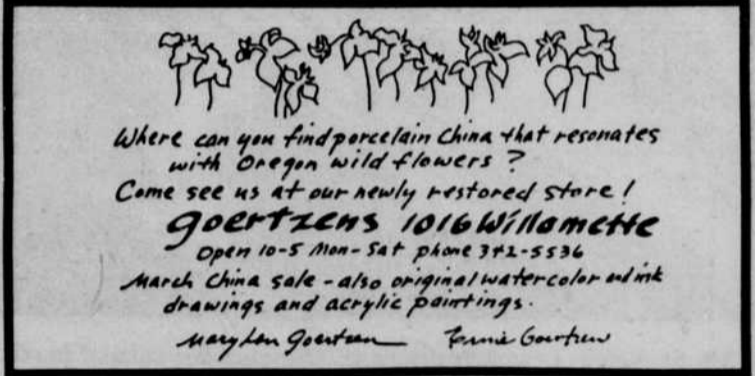 Where can you find porcelain China that resonates
with Oregon wild flowers ?
Come see us at our newly restored store !
goertzens 1016 Willamette
Open 10-5 Mon-Sat phone 342-5536
March China sale - also original watercolor and ink
drawings and acrylic paintings.
Mary Lou Goertzen Ernie Goertzen